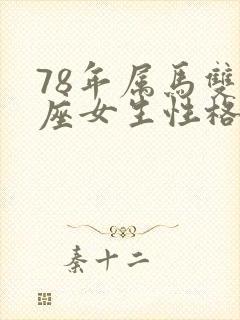 78年属馬雙
座女生性格
秦十二